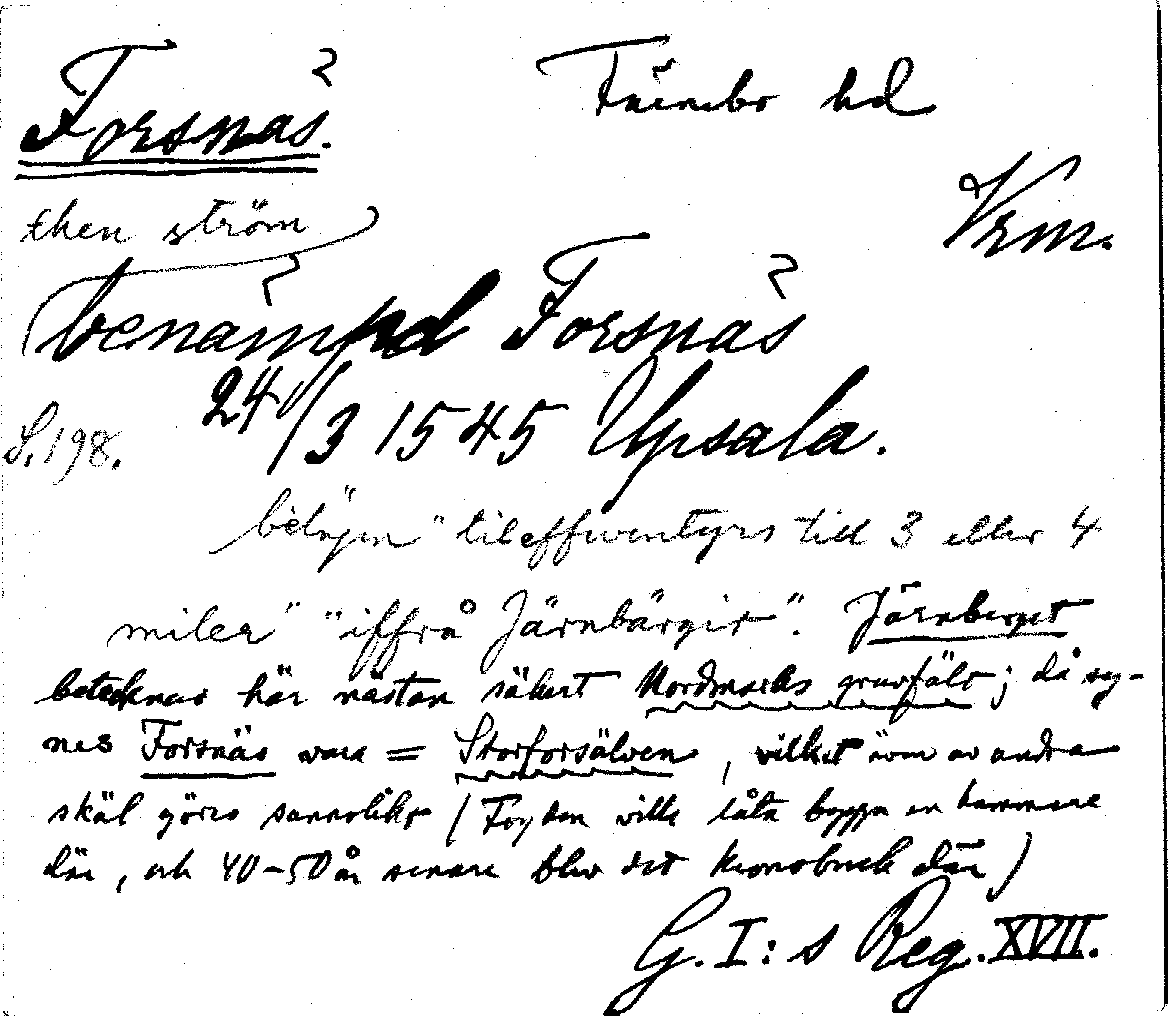 Forsnäs.
Färnebo hd
Vrm.
then ström
benämpnd Forsnäs
S. 198.
24/3 1545 Upsala.
belägen "til effwentyrs till 3 eller 4
miler" "iffrå Järnbärgit". Järnberget
betecknar här nästan säkert Nordmarks gruvfält; då sy-
nes Forsnäs vara = Storforsälven, vilket även av andra
skäl göres sannolikt (Fogden ville låta bygga en hammare
där, och 40-50 år senare blev det kronobruk där)
G. I:s Reg. XVII.